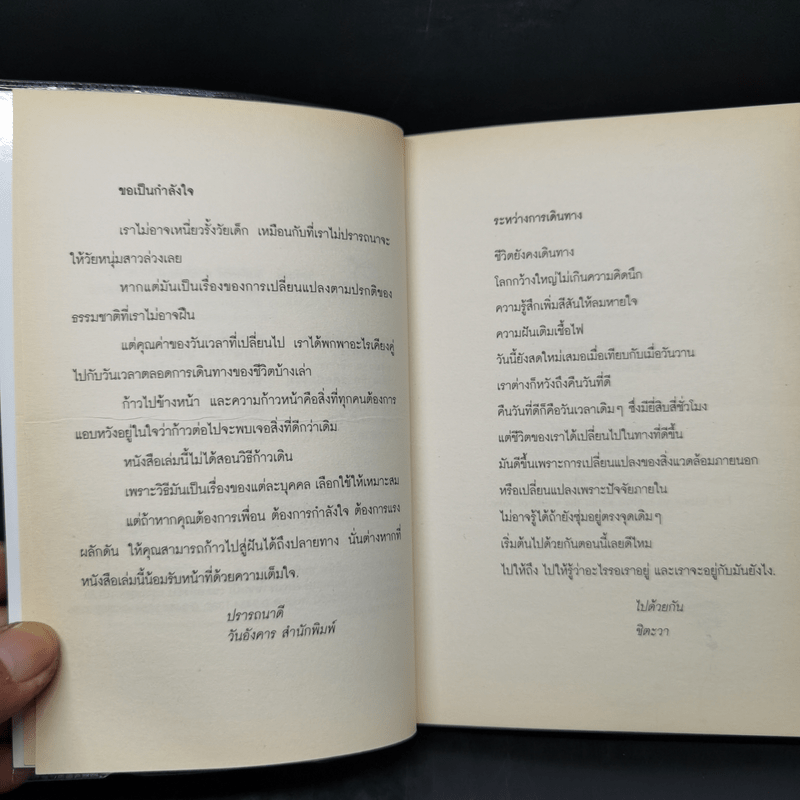 ขอเป็นกำลังใจ
เราไม่อาจเหนี่ยวรั้งวัยเด็ก เหมือนกับที่เราไม่ปรารถนาจะ
ให้วัยหนุ่มสาวล่วงเลย
หากแต่มันเป็นเรื่องของการเปลี่ยนแปลงตามปรกติของ
ธรรมชาติที่เราไม่อาจฝืน
แต่คุณค่าของวันเวลาที่เปลี่ยนไป เราได้พกพาอะไรเคียงคู่
ไปกับวันเวลาตลอดการเดินทางของชีวิตบ้างเล่า
ก้าวไปข้างหน้า และความก้าวหน้าคือสิ่งที่ทุกคนต้องการ
แอบหวังอยู่ในใจว่าก้าวต่อไปจะพบเจอสิ่งที่ดีกว่าเดิม
หนังสือเล่มนี้ไม่ได้สอนวิธีก้าวเดิน
เพราะวิธีมันเป็นเรื่องของแต่ละบุคคล เลือกใช้ให้เหมาะสม
แต่ถ้าหากคุณต้องการเพื่อน ต้องการกำลังใจ ต้องการแรง
ผลักดัน ให้คุณสามารถก้าวไปสู่ฝันได้ถึงปลายทาง นั่นต่างหากที่
หนังสือเล่มนี้น้อมรับหน้าที่ด้วยความเต็มใจ.
ปรารถนาดี
วันอังคาร สำนักพิมพ์
ระหว่างการเดินทาง
ชีวิตยังคงเดินทาง
โลกกว้างใหญ่ไม่เกินความคิดนึก
ความรู้สึกเพิ่มสีสันให้ลมหายใจ
ความฝันเติมเชื้อไฟ
วันนี้ยังสดใหม่เสมอเมื่อเทียบกับเมื่อวันวาน
เราต่างก็หวังถึงคืนวันที่ดี
คืนวันที่ดีก็คือวันเวลาเดิมๆ ซึ่งมียี่สิบสี่ชั่วโมง
แต่ชีวิตของเราได้เปลี่ยนไปในทางที่ดีขึ้น
มันดีขึ้นเพราะการเปลี่ยนแปลงของสิ่งแวดล้อมภายนอก
หรือเปลี่ยนแปลงเพราะปัจจัยภายใน
ไม่อาจรู้ได้ถ้ายังซุ่มอยู่ตรงจุดเดิมๆ
เริ่มต้นไปด้วยกันตอนนี้เลยดีไหม
ไปให้ถึง ไปให้รู้ว่าอะไรรอเราอยู่ และเราจะอยู่กับมันยังไง.
ไปด้วยกัน
ชิตะวา